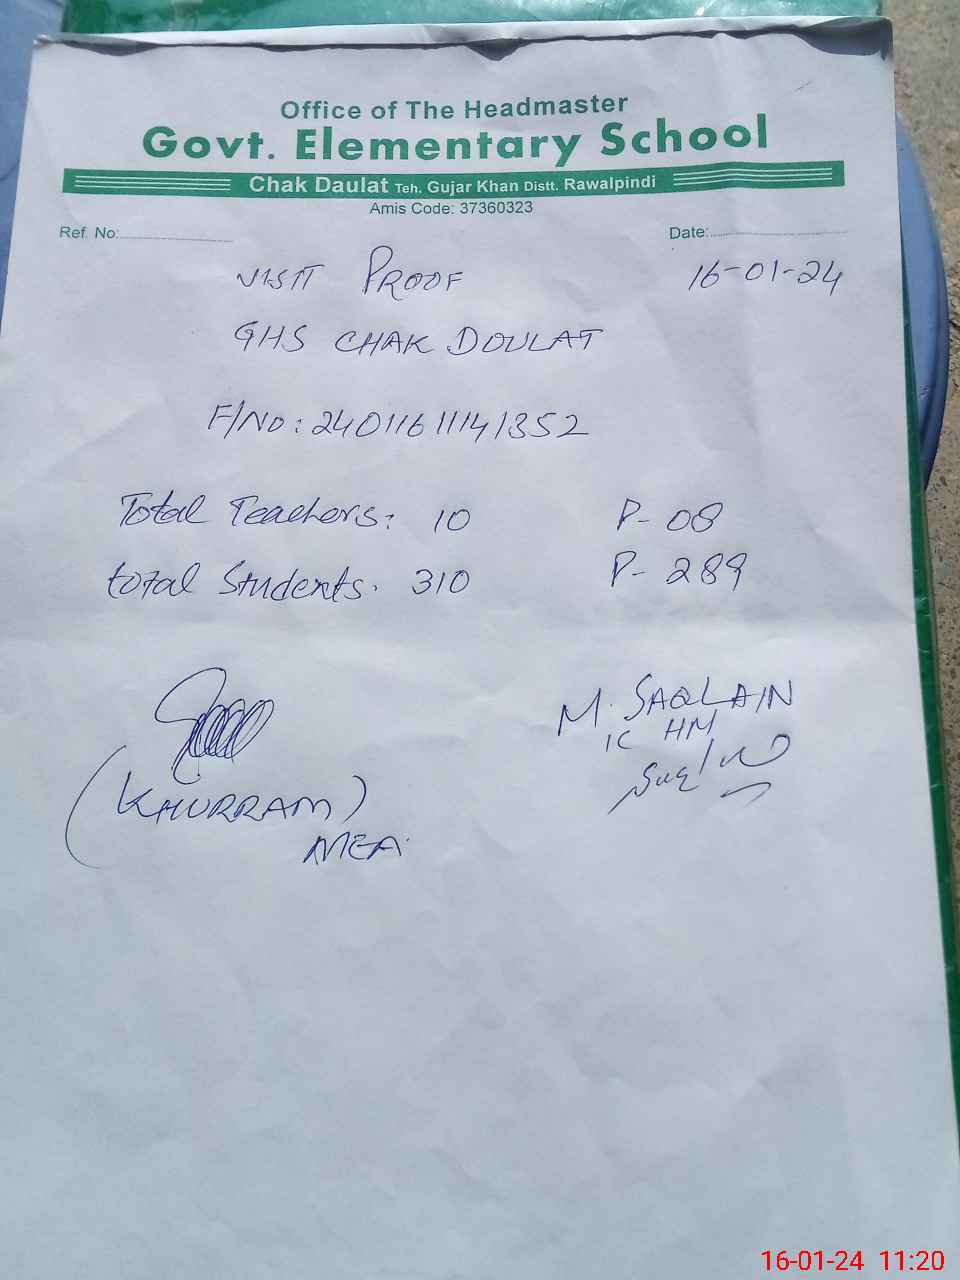 Office of The Headmaster
Govt. Elementary School
Chak Daulat Teh. Gujar Khan Distt. Rawalpindi
Amis Code: 37360323
Ref. No:
Date:
VISIT PROOF 16-01-24
GHS CHAK DOULAT
F/NO: 24011611141352
Total Teachers: 10 P- 08
total Students. 310 P- 289
M. SAQLAIN
IC HM
(KHURRAM)
MEA
16-01-24 11:20